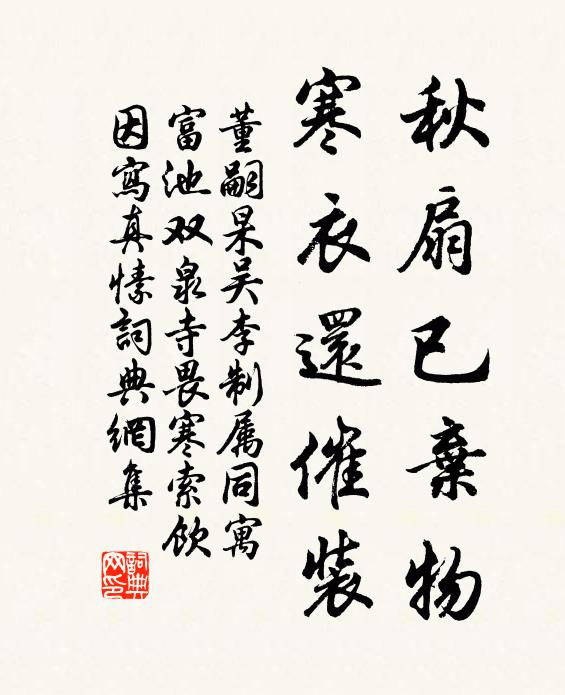 秋扇已棄物
寒衣還催裝
董嗣杲吴李制属同寓
富池双泉寺畏寒索飲
因寫真愫詞典網集
詞典
网印